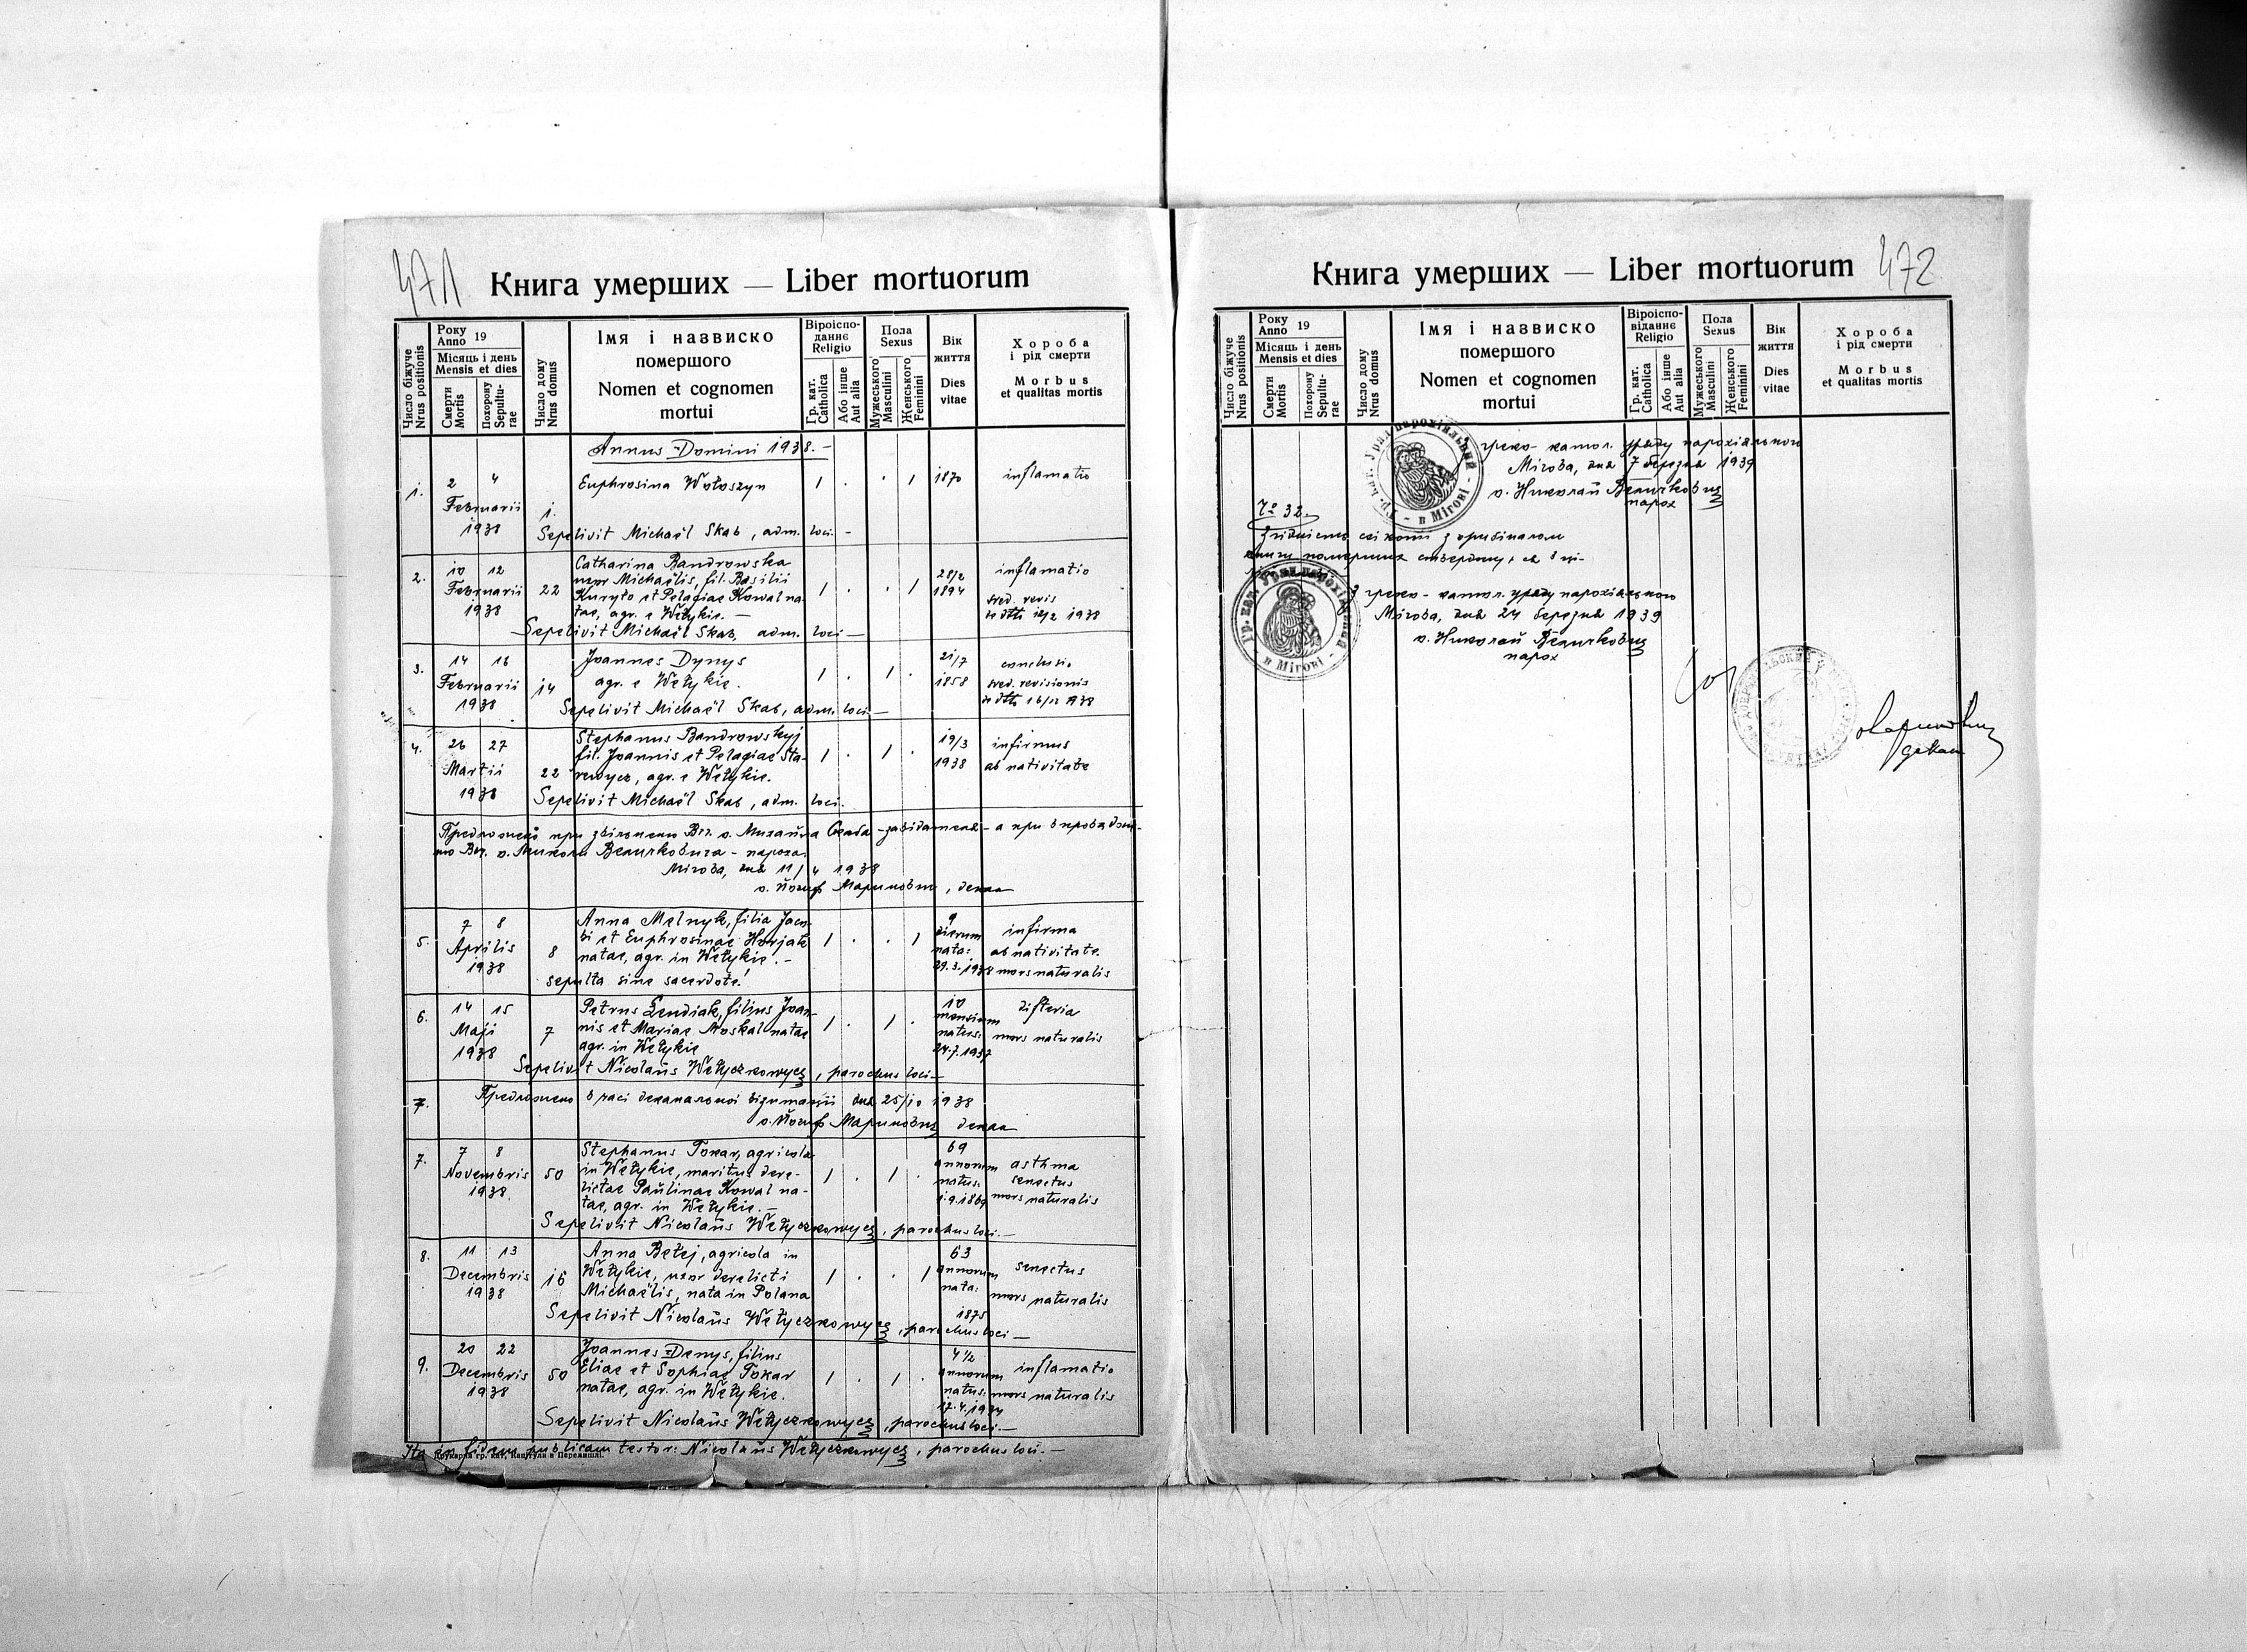 471
Книга умерших — Liber mortuorum
Число біжуче
Nrus positionis
Року
Anno 19
Місяць і день
Mensis et dies
Смерти
Mortis
Похорону
Sepultu-
rae
Число дому
Nrus domus
Імя і назвиско
помершого
Nomen et cognomen
mortui
Віроіспо-
данне
Religio
Гр. кат.
Catholica
Або інше
Aut alia
Пола
Sexus
Мужеського
Masculini
Женського
Feminini
Вік
життя
Dies
vitae
Хороба
і рід смерти
Morbus
et qualitas mortis
Annus Domini 1938. —
1. 2 4 Euphrosina Wołoszyn 1 . . 1 1870 inflamatio
Februarii 1.
1938 Sepelivit Michaël Skab, adm. loci. —
2. 10 12 Catharina Bandrowska 28/2 inflamatio
Februarii 22 uxor Michaëlis, fil. Basilii 1 . . 1 1894
1938 Kuryło et Pelagiae Kowal na-
tae, agr. e Wełykie. —
Sepelivit Michaël Skab, adm. loci —
3. 14 16 Joannes Dynys 21/7
Februarii 14 agr. e Wełykie. 1 . 1 . 1858 revisionis
1938 Sepelivit Michaël Skab, adm. loci —
4. 26 27 Stephanus Bandrowskyj 19/3 infirmus
Martii 22 fil. Joannis et Pelagiae Sta- 1 . 1 . 1938 ab nativitate
1938 rewycz, agr. e Wełykie.
Sepelivit Michaël Skab, adm. loci.
Предложено при звільненю Вп. о. Михайла Скаба - завідателя - а при впровадженю
Вп. о. Николи Величковича - пароха.
Мігова, дня 11/4 1938
о. Йосиф Маринович, декан
5. 7 8 Anna Melnyk, filia Jaco- 9 infirma
Aprilis 8 bi et Euphrosinae Horjak 1 . . 1 dierum ab nativitate.
1938 natae, agr. in Wełykie. — nata: 29.3.1938 mors naturalis
sepulta sine sacerdote!
6. 14 15 Petrus Lendiak, filius Joan- 10 difteria
Maji 7 nis et Mariae Moskal natae 1 . 1 . mensium mors naturalis
1938 agr. in Wełykie natus: 24.7.1937
Sepelivit Nicolaüs Wełyczkowycz, parochus loci —
7. Предложено в часі деканальної візитації дня 25/10 1938
о. Йосиф Маринович декан
7. 7 8 Stephanus Tokar, agricola 69 asthma
Novembris 50 in Wełykie, maritus dere- 1 . 1 . annorum senectus
1938. lictae Paülinae Kowal na- natus: 1.9.1869 mors naturalis
tae, agr. in Wełykie. —
Sepelivit Nicolaüs Wełyczkowycz, parochus loci. —
8. 11 13 Anna Bełej, agricola in 63 senectus
Decembris 16 Wełykie, uxor derelicti 1 . . 1 annorum mors naturalis
1938 Michaëlis, nata in Polana nata: 1875
Sepelivit Nicolaüs Wełyczkowycz, parochus loci —
9. 20 22 Joannes Denys, filius 4½ inflamatio
Decembris 50 Eliae et Sophiae Tokar 1 . 1 . annorum mors naturalis
1938 natae, agr. in Wełykie. natus: 12.4.1934
Sepelivit Nicolaüs Wełyczkowycz, parochus loci. —
Ita ad fidem publicam testor: Nicolaüs Wełyczkowycz, parochus loci. —
Друкарня гр. кат. Капітули в Перемишлі.
Книга умерших — Liber mortuorum 472
Число біжуче
Nrus positionis
Року
Anno 19
Місяць і день
Mensis et dies
Смерти
Mortis
Похорону
Sepultu-
rae
Число дому
Nrus domus
Імя і назвиско
помершого
Nomen et cognomen
mortui
Віроіспо-
віданне
Religio
Гр. кат.
Catholica
Або інше
Aut alia
Пола
Sexus
Мужеського
Masculini
Женського
Feminini
Вік
життя
Dies
vitae
Хороба
і рід смерти
Morbus
et qualitas mortis
греко-катол. уряду парохіяльного
Мігова, дня 7 березня 1939
о. Николай Величкович
парох
Гр. кат. Уряд парохіяльний в Мігові
32.
Згідність сеї копії з оригіналом
книги померших стверджую
З греко-катол. уряду парохіяльного
Мігова, дня 24 березня 1939
о. Николай Величкович
парох
Гр. кат. Уряд парохіяльний в Мігові
Маринович
декан